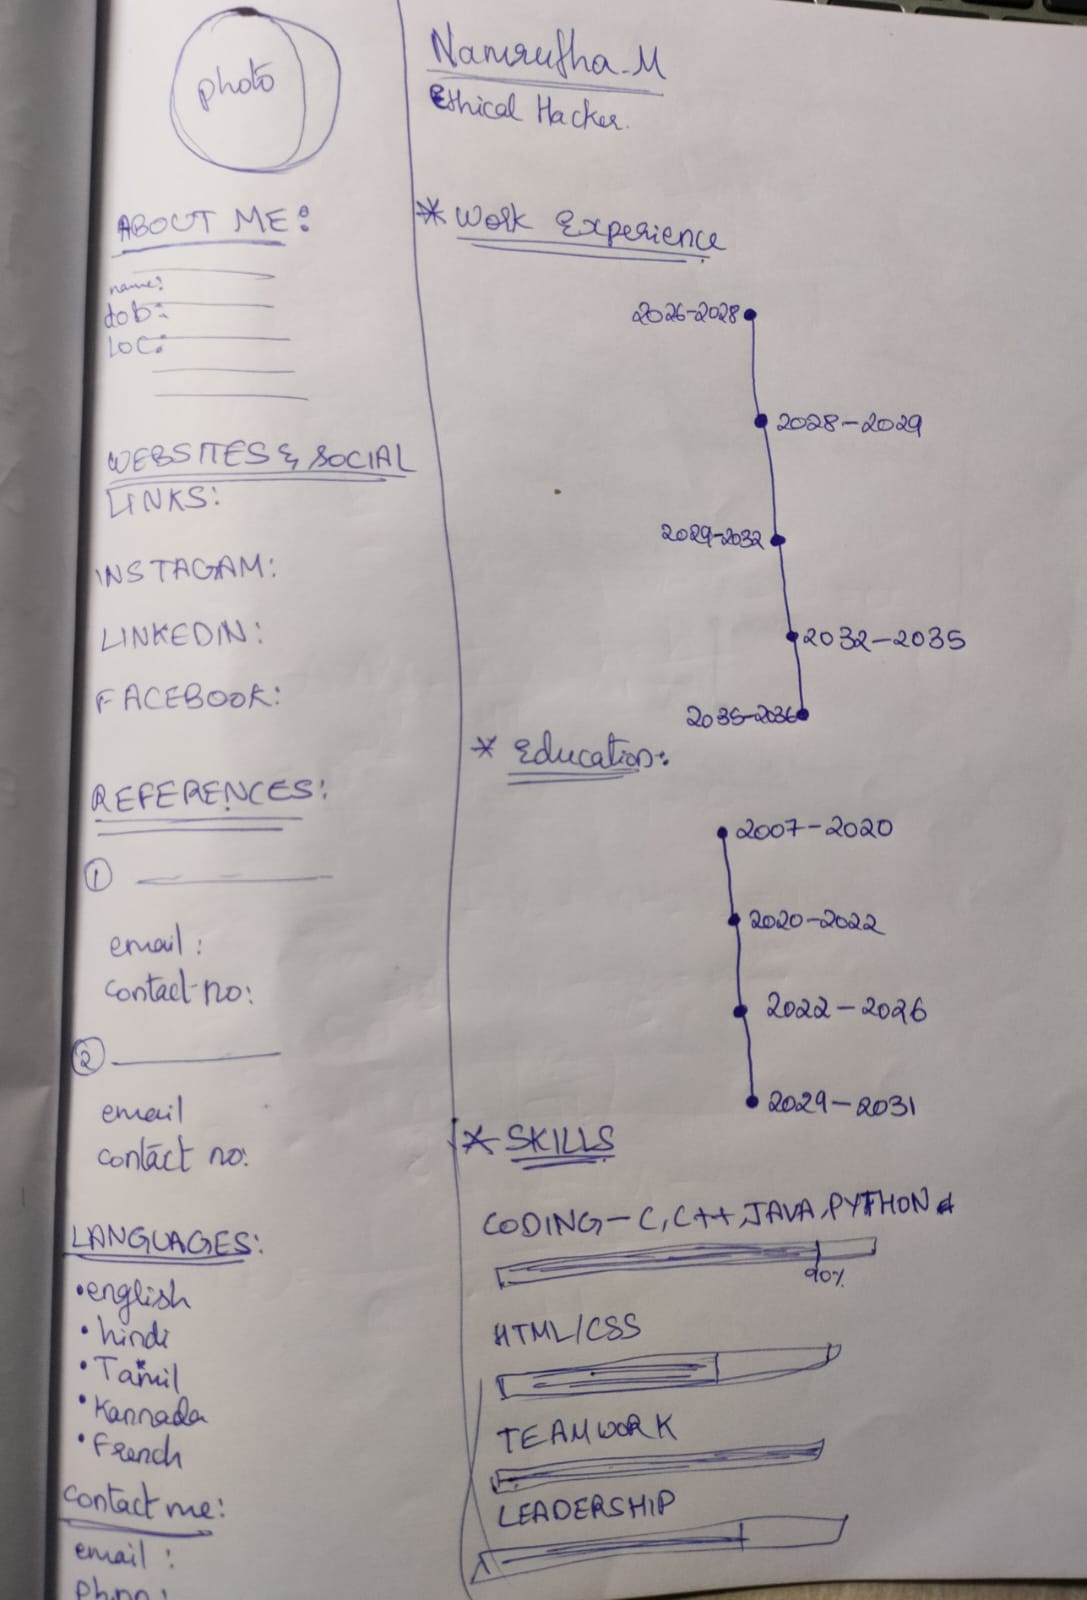 photo
ABOUT ME:
name:
dob:
LOC:
WEBSITES & SOCIAL
LINKS:
INSTAGAM:
LINKEDIN:
FACEBOOK:
REFERENCES:
1
email:
contact no:
2
email
contact no:
LANGUAGES:
• english
• hindi
• Tamil
• Kannada
• French
Contact me:
email:
Ph.no:
Namrutha.M
Ethical Hacker.
* Work Experience
2026-2028
2028-2029
2029-2032
2032-2035
2035-2036
* Education:
2007-2020
2020-2022
2022-2026
2029-2031
* SKILLS
CODING-C, C++, JAVA, PYTHON
90%
HTML/CSS
TEAMWORK
LEADERSHIP